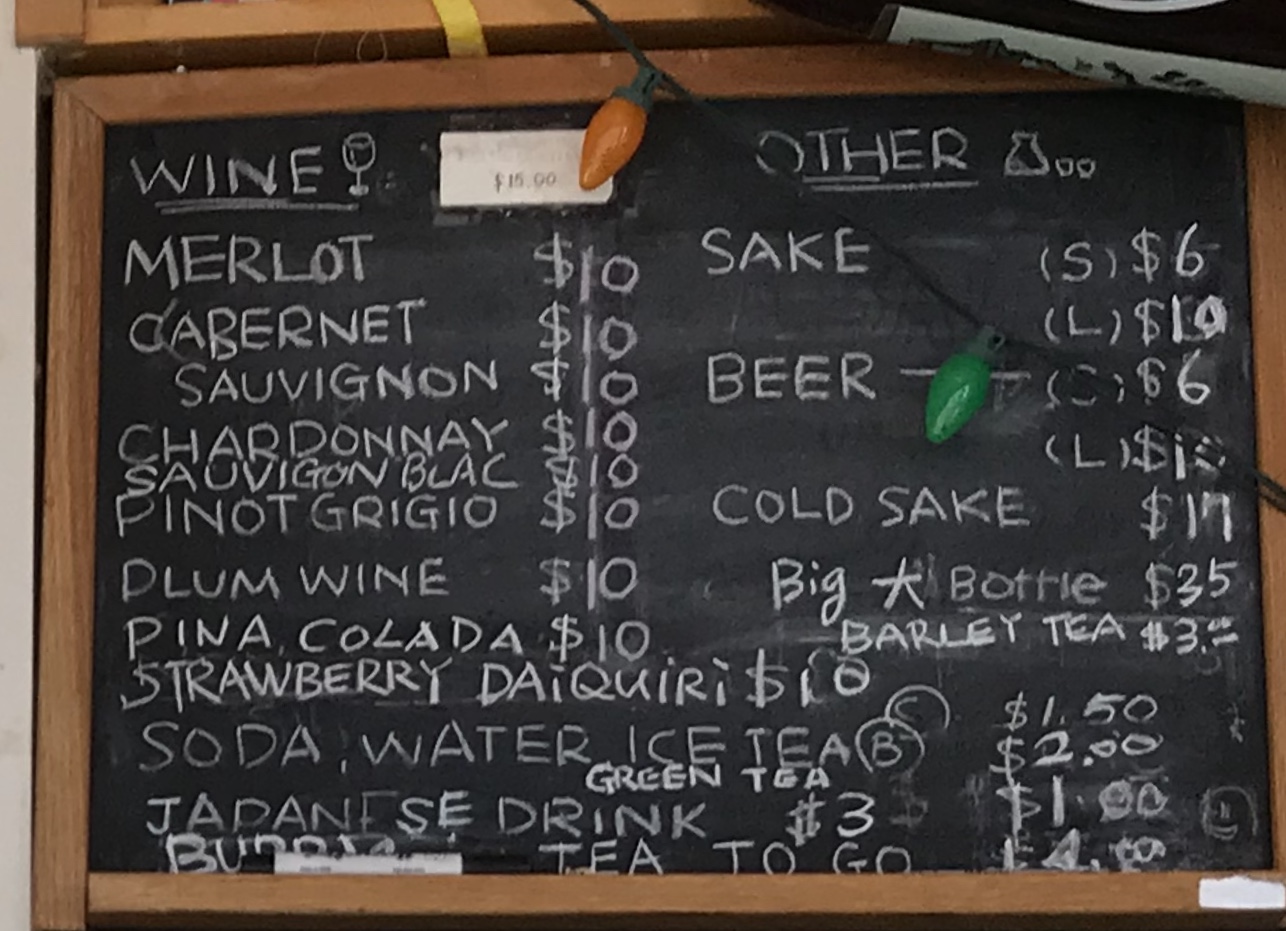 WINE
$15.00
MERLOT $10
CABERNET $10
SAUVIGNON $10
CHARDONNAY $10
SAUVIGON BLAC $10
PINOT GRIGIO $10
PLUM WINE $10
PINA COLADA $10
STRAWBERRY DAiQUiRi $10
OTHER
SAKE (S) $6
(L) $10
BEER (S) $6
(L) $10
COLD SAKE $17
Big 大 Bottle $35
BARLEY TEA $3.00
C $1.50
SODA, WATER, ICE TEA B $2.00
GREEN TEA
JAPANESE DRINK $3 $1.00
TEA TO GO